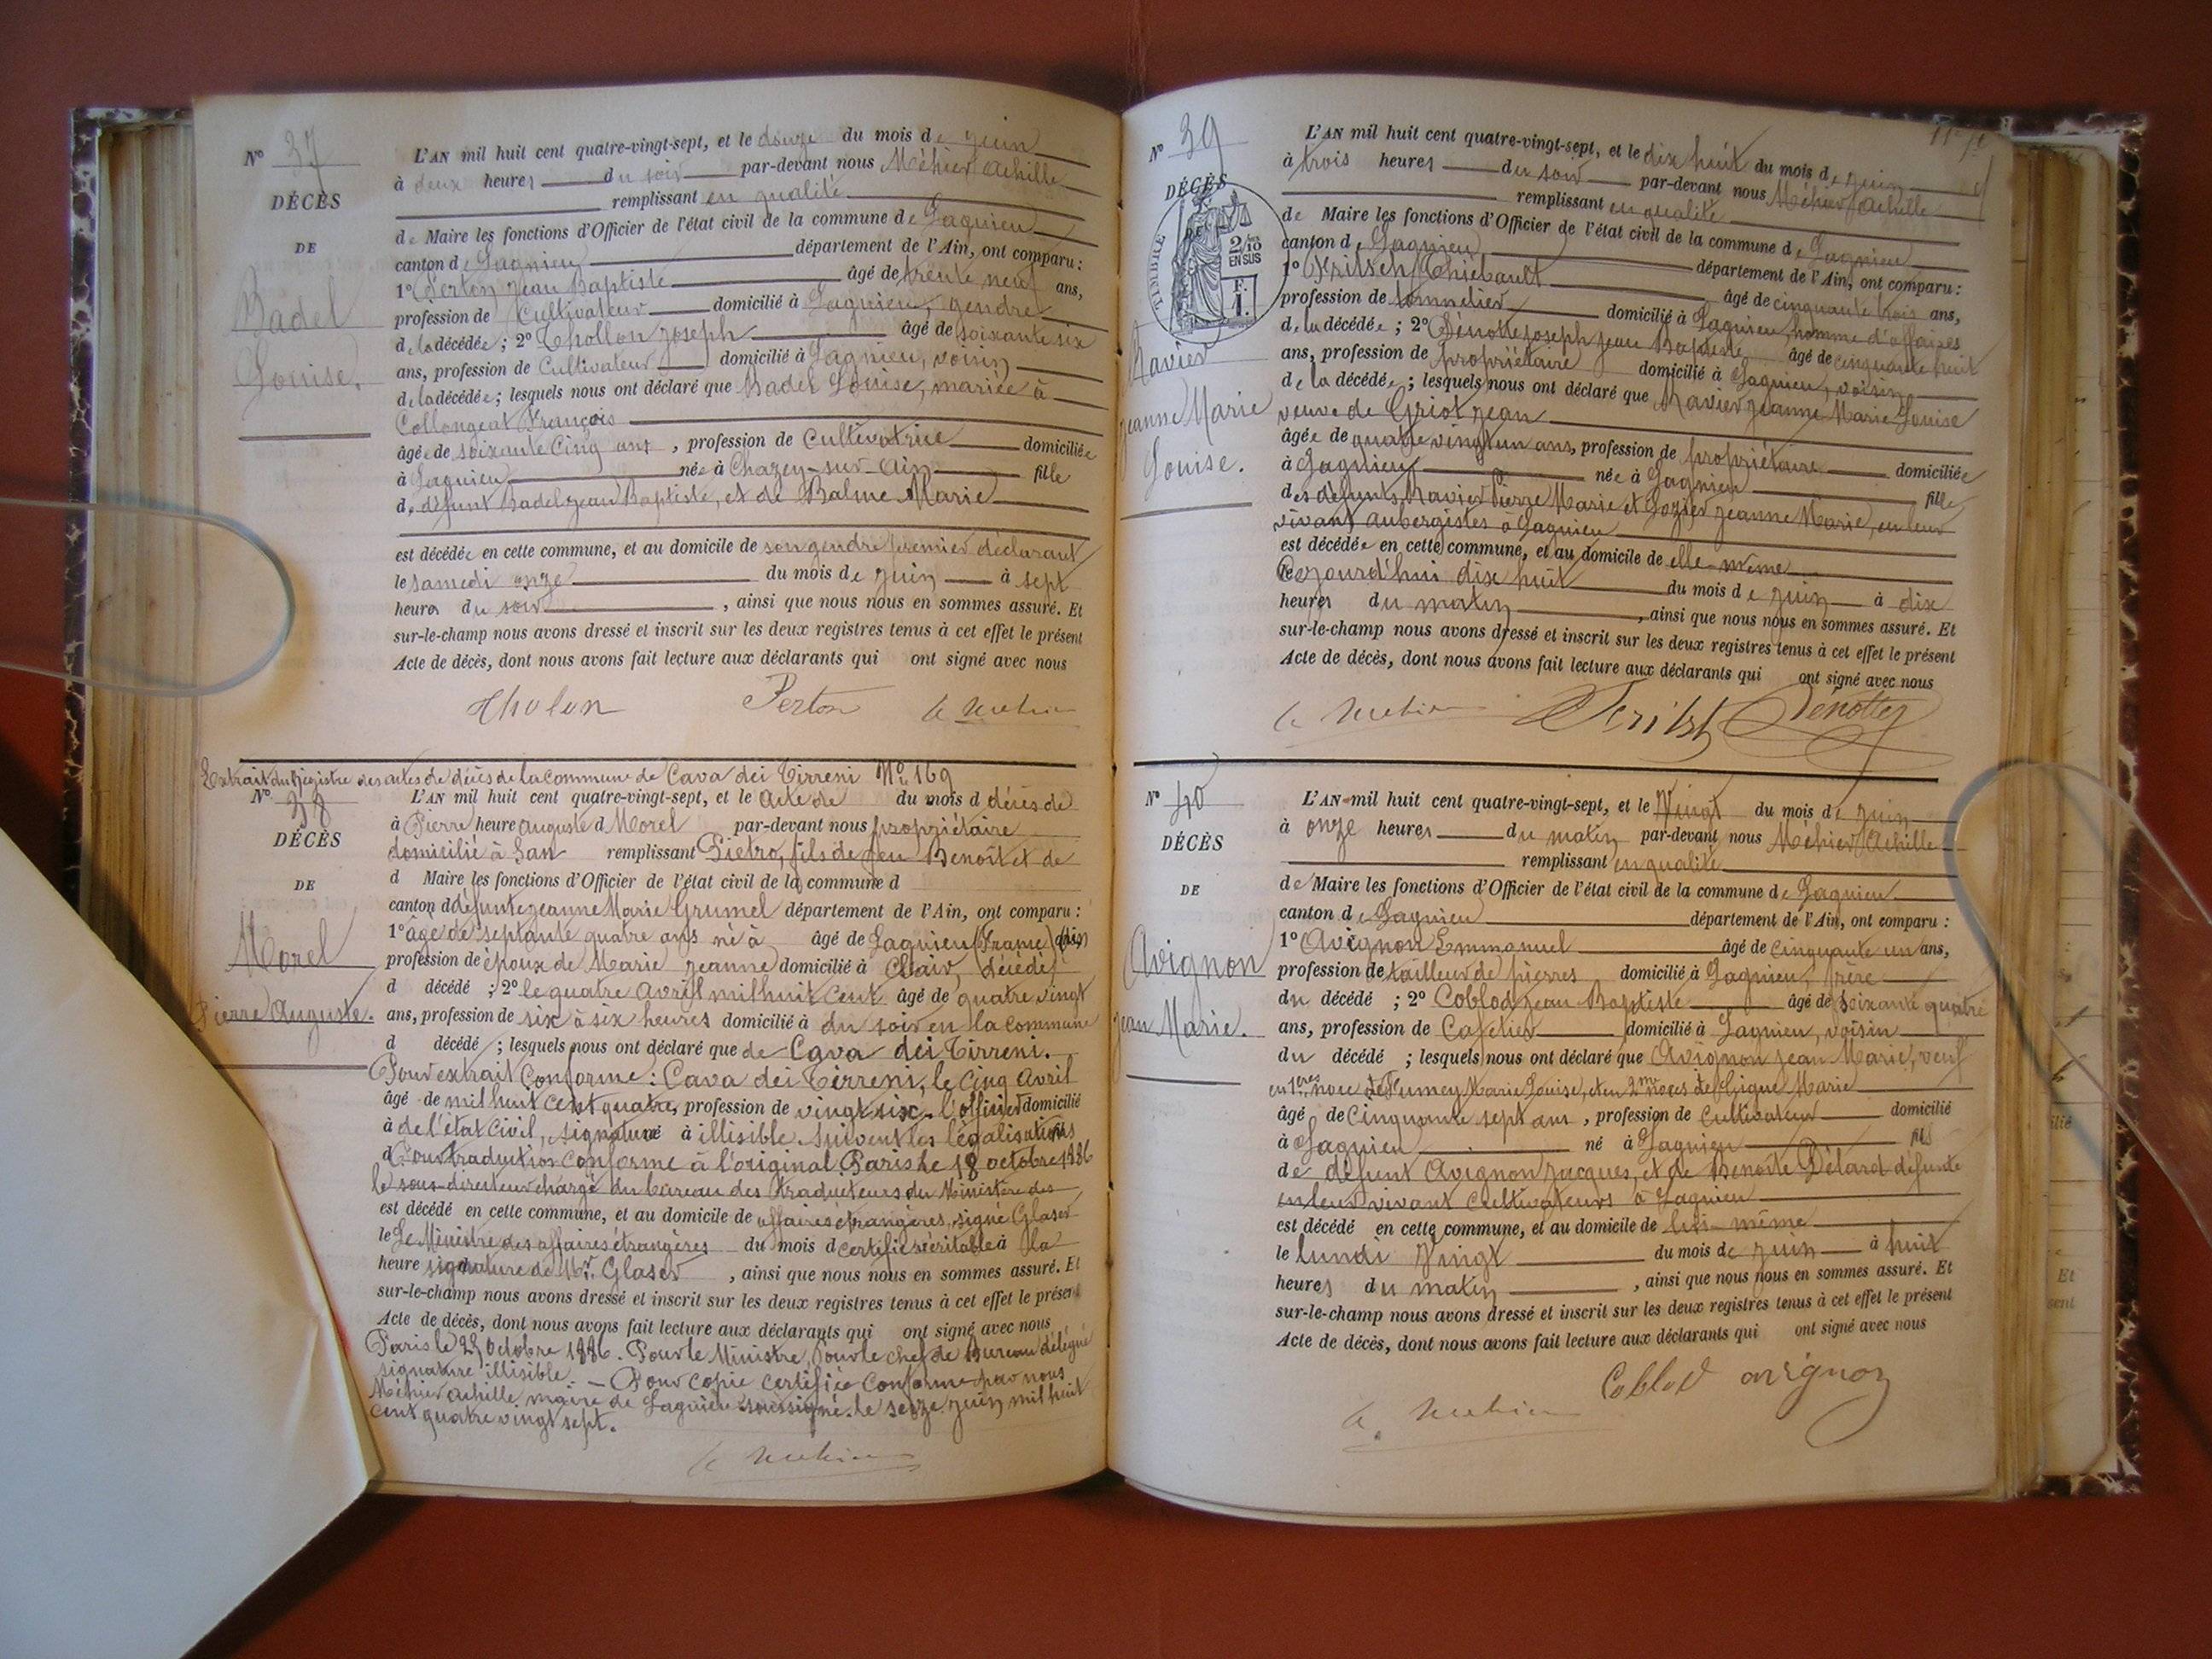 N° 37
DÉCÈS
DE
Badel
Louise.
L'AN mil huit cent quatre-vingt-sept, et le douze du mois de juin
à deux heures du soir par-devant nous Méhier Achille
remplissant en qualité
de Maire les fonctions d'Officier de l'état civil de la commune de Lagnieu
canton de Lagnieu département de l'Ain, ont comparu :
1° Perton Jean Baptiste âgé de trente neuf ans,
profession de Cultivateur domicilié à Lagnieu, gendre
de la décédée ; 2° Thollon Joseph âgé de soixante six
ans, profession de Cultivateur domicilié à Lagnieu, voisin
de la décédée ; lesquels nous ont déclaré que Badel Louise, mariée à
Collongeat François
âgée de soixante Cinq ans, profession de Cultivatrice domiciliée
à Lagnieu née à Chazey-sur-Ain fille
de défunt Badel Jean Baptiste, et de Balme Marie
est décédée en cette commune, et au domicile de son gendre premier déclarant
le samedi onze du mois de juin à sept
heures du soir, ainsi que nous nous en sommes assuré. Et
sur-le-champ nous avons dressé et inscrit sur les deux registres tenus à cet effet le présent
Acte de décès, dont nous avons fait lecture aux déclarants qui ont signé avec nous
Tholon Perton A. Mehier
Extrait du Registre des actes de décès de la Commune de Cava dei Tirreni N° 169
N° 38
DÉCÈS
DE
Morel
Pierre Auguste.
L'AN mil huit cent quatre-vingt-sept, et le acte de du mois d décès de
à Pierre heure Auguste d Morel par-devant nous propriétaire
domicilié à San remplissant Pietro, fils de feu Benoît et de
d Maire les fonctions d'Officier de l'état civil de la commune d
canton d défunte Jeanne Marie Grumel département de l'Ain, ont comparu :
1° âgé de septante quatre ans né à âgé de Lagnieu (France) (Ain)
profession de époux de Marie Jeanne domicilié à Clair, décédé
d décédé ; 2° le quatre Avril mil huit cent âgé de quatre vingt
ans, profession de six à six heures domicilié à du soir en la commune
d décédé ; lesquels nous ont déclaré que de Cava dei Tirreni.
Pour extrait Conforme : Cava dei Tirreni, le Cinq Avril
âgé de mil huit cent quatre, profession de vingt six. l'officier domicilié
à de l'état civil, signature à illisible. Suivent les légalisations
d Pour traduction conforme à l'original. Paris le 18 octobre 1886
le sous-directeur chargé du bureau des traducteurs du Ministère des
est décédé en cette commune, et au domicile de affaires étrangères, signé Glaser
le Le Ministre des affaires étrangères du mois d certifie véritable à la
heure signature de Mr. Glaser, ainsi que nous nous en sommes assuré. Et
sur-le-champ nous avons dressé et inscrit sur les deux registres tenus à cet effet le présent
Acte de décès, dont nous avons fait lecture aux déclarants qui ont signé avec nous
Paris le 25 Octobre 1886. Pour le Ministre, Pour le chef de Bureau délégué
signature illisible. — Pour copie certifiée conforme par nous
Méhier Achille, maire de Lagnieu soussigné. le seize juin mil huit
cent quatre vingt sept.
A. Mehier
N° 39
DÉCÈS
DE
TIMBRE
2/10 EN SUS
F. 1.
Ravier
Jeanne Marie
Louise.
L'AN mil huit cent quatre-vingt-sept, et le dix huit du mois de juin
à trois heures du soir par-devant nous Méhier Achille
remplissant en qualité
de Maire les fonctions d'Officier de l'état civil de la commune de Lagnieu
canton de Lagnieu département de l'Ain, ont comparu :
1° Fritsch Thiébault âgé de cinquante trois ans,
profession de tonnelier domicilié à Lagnieu, homme d'affaires
de la décédée ; 2° Dénotte Joseph Jean Baptiste âgé de cinquante huit
ans, profession de propriétaire domicilié à Lagnieu, voisin
de la décédée ; lesquels nous ont déclaré que Ravier Jeanne Marie Louise
veuve de Griot Jean
âgée de quatre vingt un ans, profession de propriétaire domiciliée
à Lagnieu née à Lagnieu fille
des défunts Ravier Pierre Marie et Jeanne Marie, en leur
vivant Aubergistes à Lagnieu
est décédée en cette commune, et au domicile de elle-même
le aujourd'hui dix huit du mois de juin à dix
heures du matin, ainsi que nous nous en sommes assuré. Et
sur-le-champ nous avons dressé et inscrit sur les deux registres tenus à cet effet le présent
Acte de décès, dont nous avons fait lecture aux déclarants qui ont signé avec nous
A. Mehier Dénotte
N° 40
DÉCÈS
DE
Avignon
Jean Marie.
L'AN mil huit cent quatre-vingt-sept, et le Vingt du mois de juin
à onze heures du matin par-devant nous Méhier Achille
remplissant en qualité
de Maire les fonctions d'Officier de l'état civil de la commune de Lagnieu
canton de Lagnieu département de l'Ain, ont comparu :
1° Avignon Emmanuel âgé de Cinquante un ans,
profession de tailleur de pierres domicilié à Lagnieu, frère
du décédé ; 2° Coblod Jean Baptiste âgé de Soixante quatre
ans, profession de Cafetier domicilié à Lagnieu, voisin
du décédé ; lesquels nous ont déclaré que Avignon Jean Marie, veuf
en 1ères noce de Fumey Marie Louise, et en 2mes noces de Marie
âgé de Cinquante sept ans, profession de Cultivateur domicilié
à Lagnieu né à Lagnieu fils
de défunt Avignon Jacques, et de Benoîte Détard défunte
en leur vivant Cultivateurs à Lagnieu
est décédé en cette commune, et au domicile de lui-même
le lundi vingt du mois de juin à huit
heures du matin, ainsi que nous nous en sommes assuré. Et
sur-le-champ nous avons dressé et inscrit sur les deux registres tenus à cet effet le présent
Acte de décès, dont nous avons fait lecture aux déclarants qui ont signé avec nous
Coblod avignon
A. Mehier